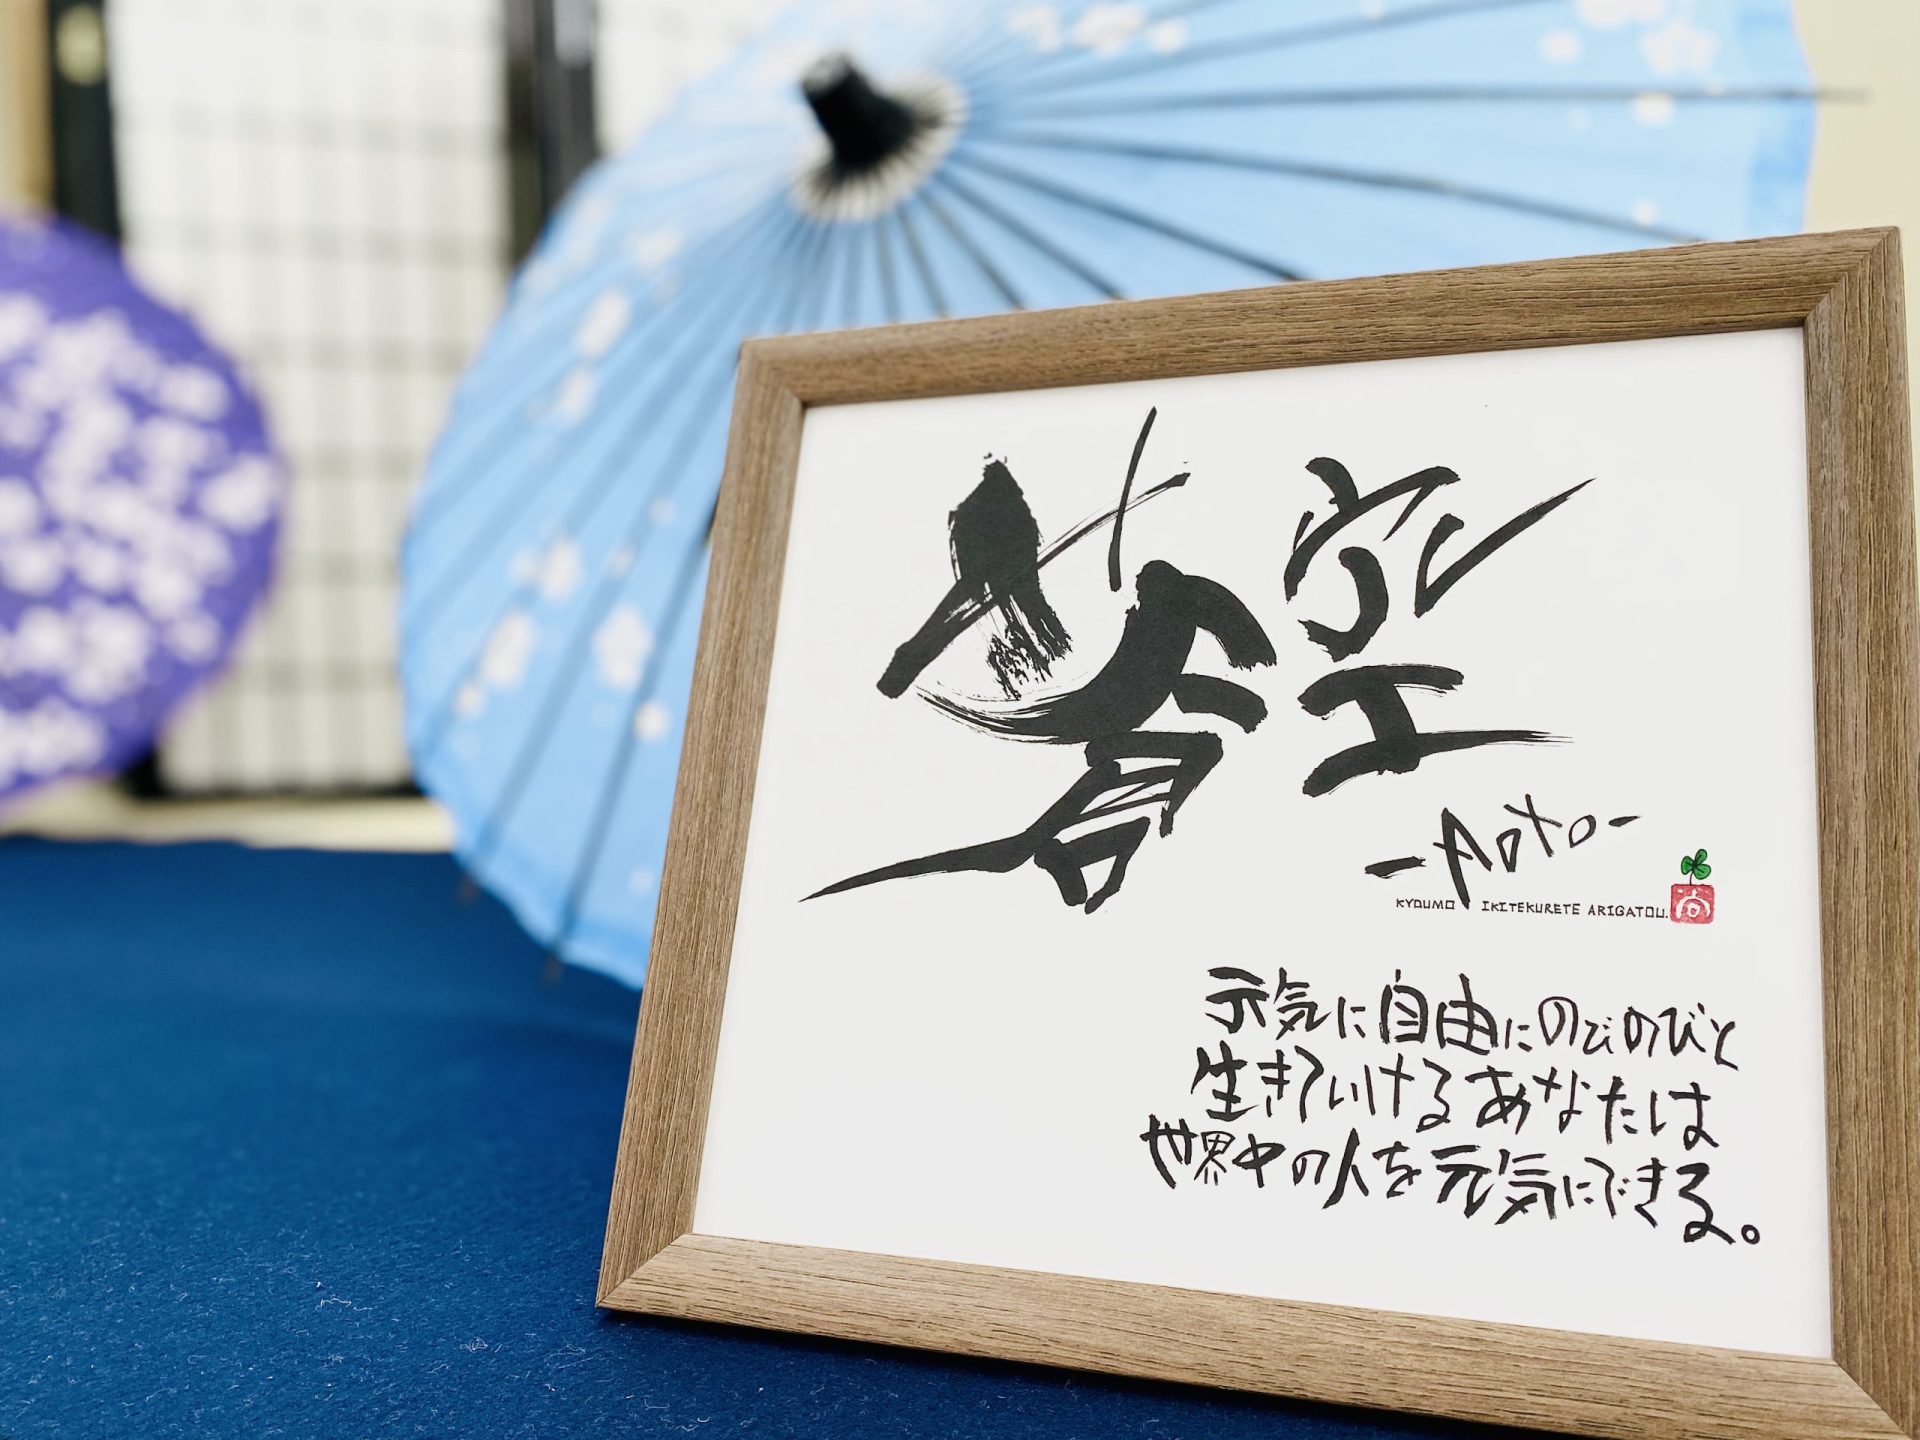 蒼空
-Aoto-
KYOUMO IKITEKURETE ARIGATOU.
元気に自由にのびのびと
生きていけるあなたは
世界中の人を元気にできる。